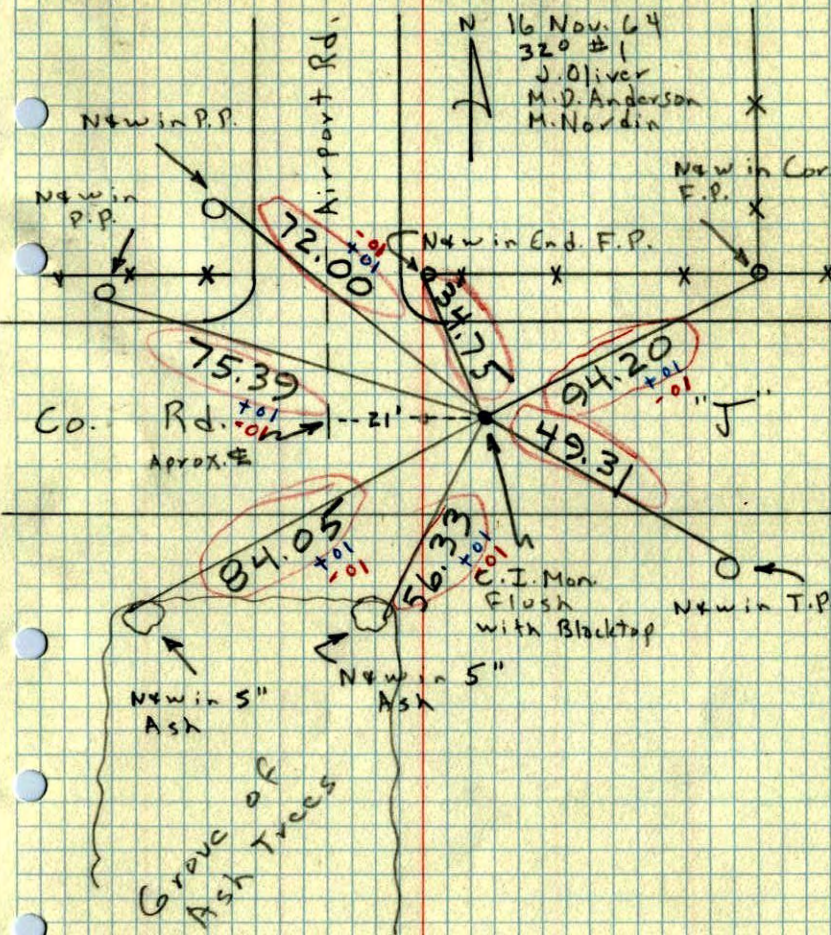 N
16 Nov. 64
32° #1
J. Oliver
M.D. Anderson
M. Nordin
Airport Rd.
N&W in P.P.
N&W in
P.P.
N&W in End. F.P.
N&W in Cor
F.P.
72.00
-01
+01
34.75
75.39
+01
-01
94.20
+01
-01
"J"
Co. Rd.
Aprox. ℄
-- 21' --
49.31
84.05
+01
-01
56.33
+01
-01
C.I. Mon.
Flush
with Blacktop
N&W in T.P.
N&W in 5"
Ash
N&W in 5"
Ash
Grove of
Ash Trees